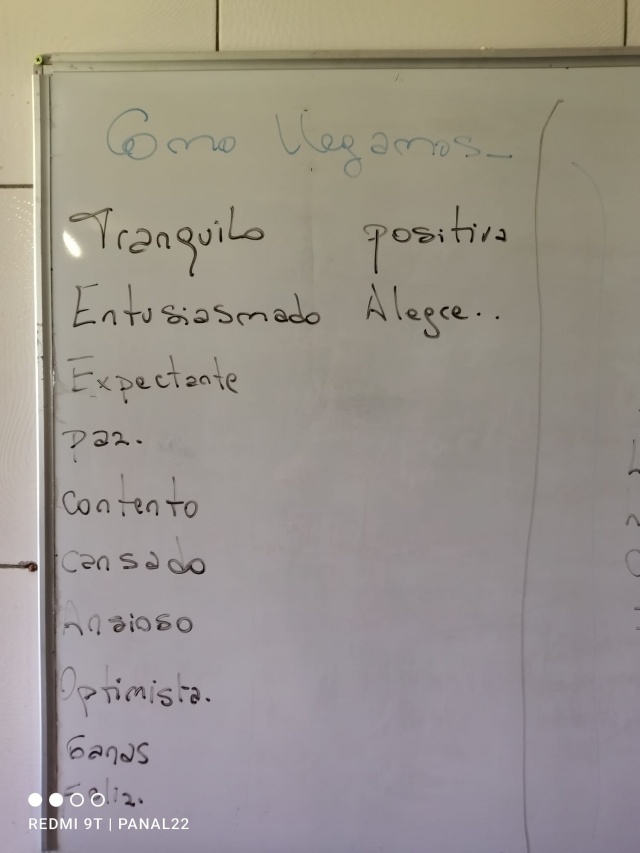 Como llegamos_
Tranquilo positiva
Entusiasmado Alegre..
Expectante
Paz.
Contento
Cansado
Ansioso
Optimista.
Ganas
Feliz.
REDMI 9T | PANAL22